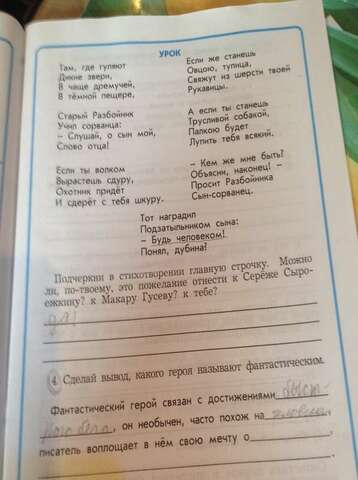 УРОК
Там, где гуляют
Дикие звери,
В чаще дремучей,
В тёмной пещере,
Старый Разбойник
Учил сорванца:
– Слушай, о сын мой,
Слово отца!
Если ты волком
Вырастешь сдуру,
Охотник придёт
И сдерёт с тебя шкуру.
Если же станешь
Овцою, тупица,
Свяжут из шерсти твоей
Рукавицы.
А если ты станешь
Трусливой собакой,
Палкою будет
Лупить тебя всякий.
– Кем же мне быть?
Объясни, наконец! –
Просит Разбойника
Сын-сорванец.
Тот наградил
Подзатыльником сына:
– Будь человеком!
Понял, дубина?
Подчеркни в стихотворении главную строчку. Можно
ли, по-твоему, это пожелание отнести к Серёже Сыро-
ежкину? к Макару Гусеву? к тебе?
4. Сделай вывод, какого героя называют фантастическим.
Фантастический герой связан с достижениями
, он необычен, часто похож на человека,
писатель воплощает в нём свою мечту о